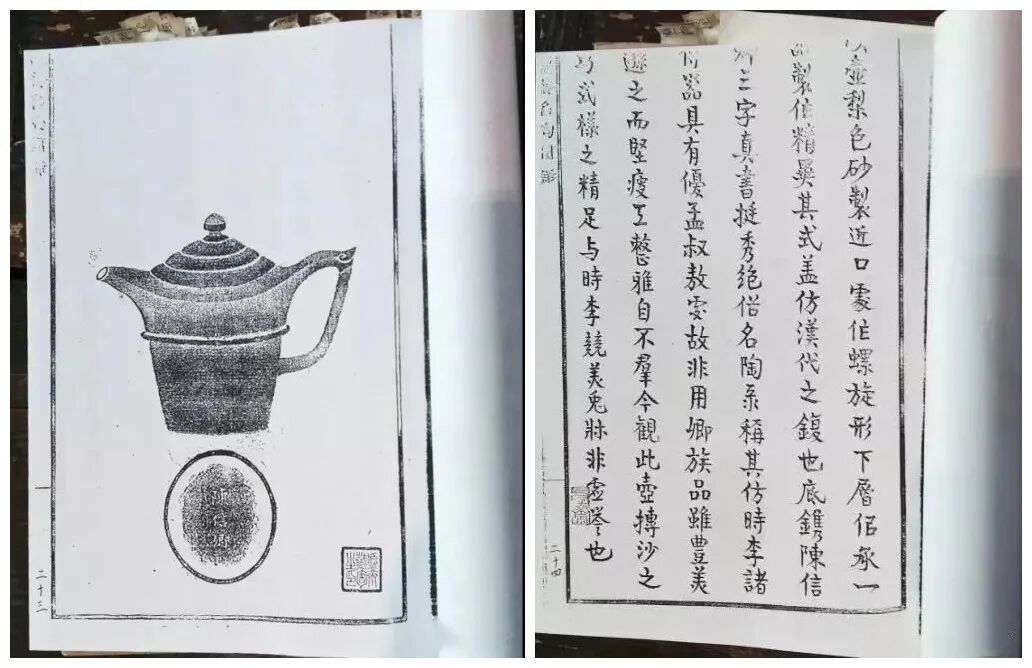 二十三
壺梨色砂製近口處作螺旋形下層佀承一
製作精異其式盖仿漢代之鍑也底鐫陳信
卿三字真書挺秀絶俗名陶系稱其仿時李諸
器具有優孟叔敖處故非用卿族品雖豊美
遜之而堅瘦工整雅自不羣今観此壺摶沙之
式樣之精足与時李競美兎牀非虚誉也
名陶圖錄
二十四